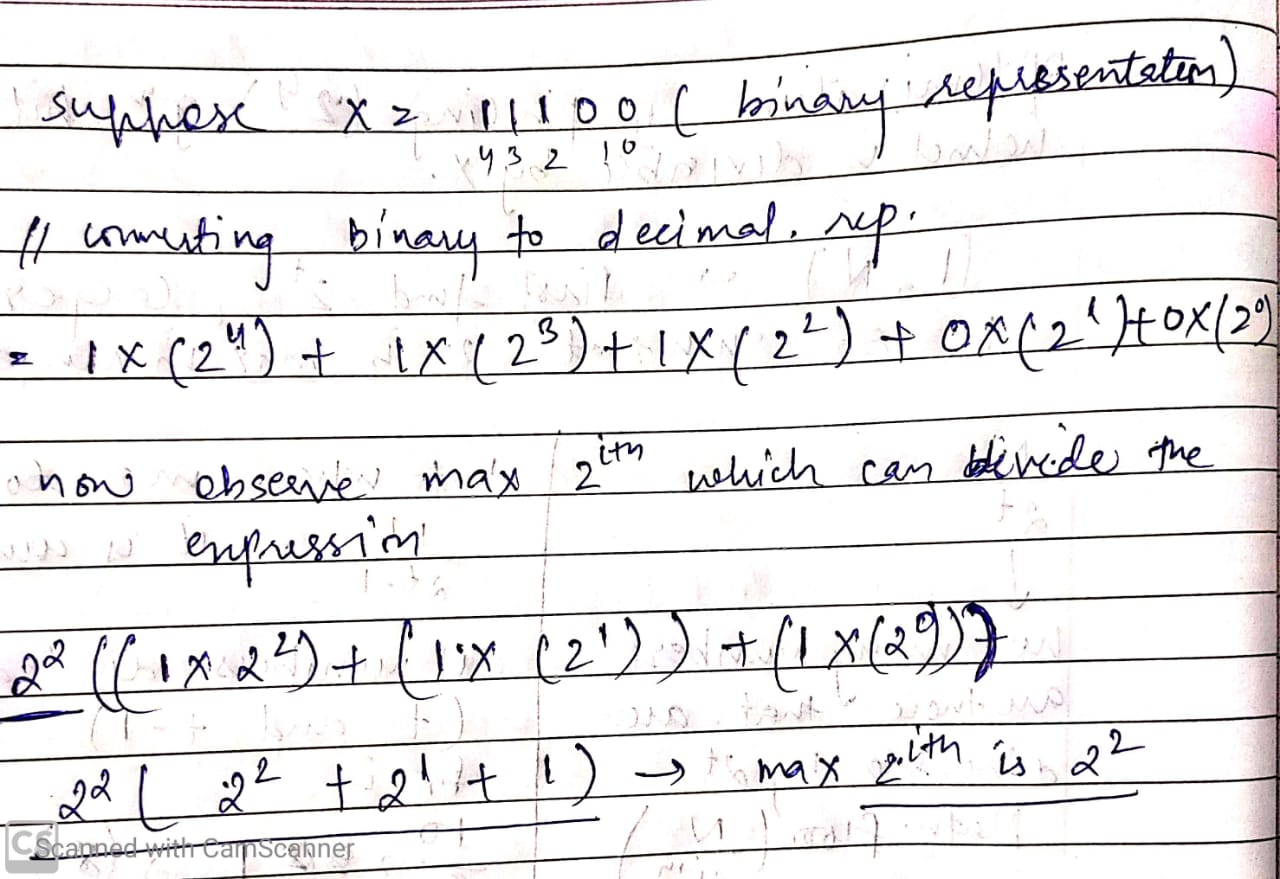 suppose x = 11100 ( binary representation)
4 3 2 1 0
// converting binary to decimal. rep.
= 1 x (2⁴) + 1x ( 2³) + 1 x ( 2²) + 0x(2¹)+0x(2⁰)
now observe max 2ⁱᵗʰ which can divide the
expression
2² ((1 x 2²) + (1 x (2¹)) + (1 x(2⁰)))
2² ( 2² + 2¹ + 1) → max 2ⁱᵗʰ is 2²
CS Scanned with CamScanner